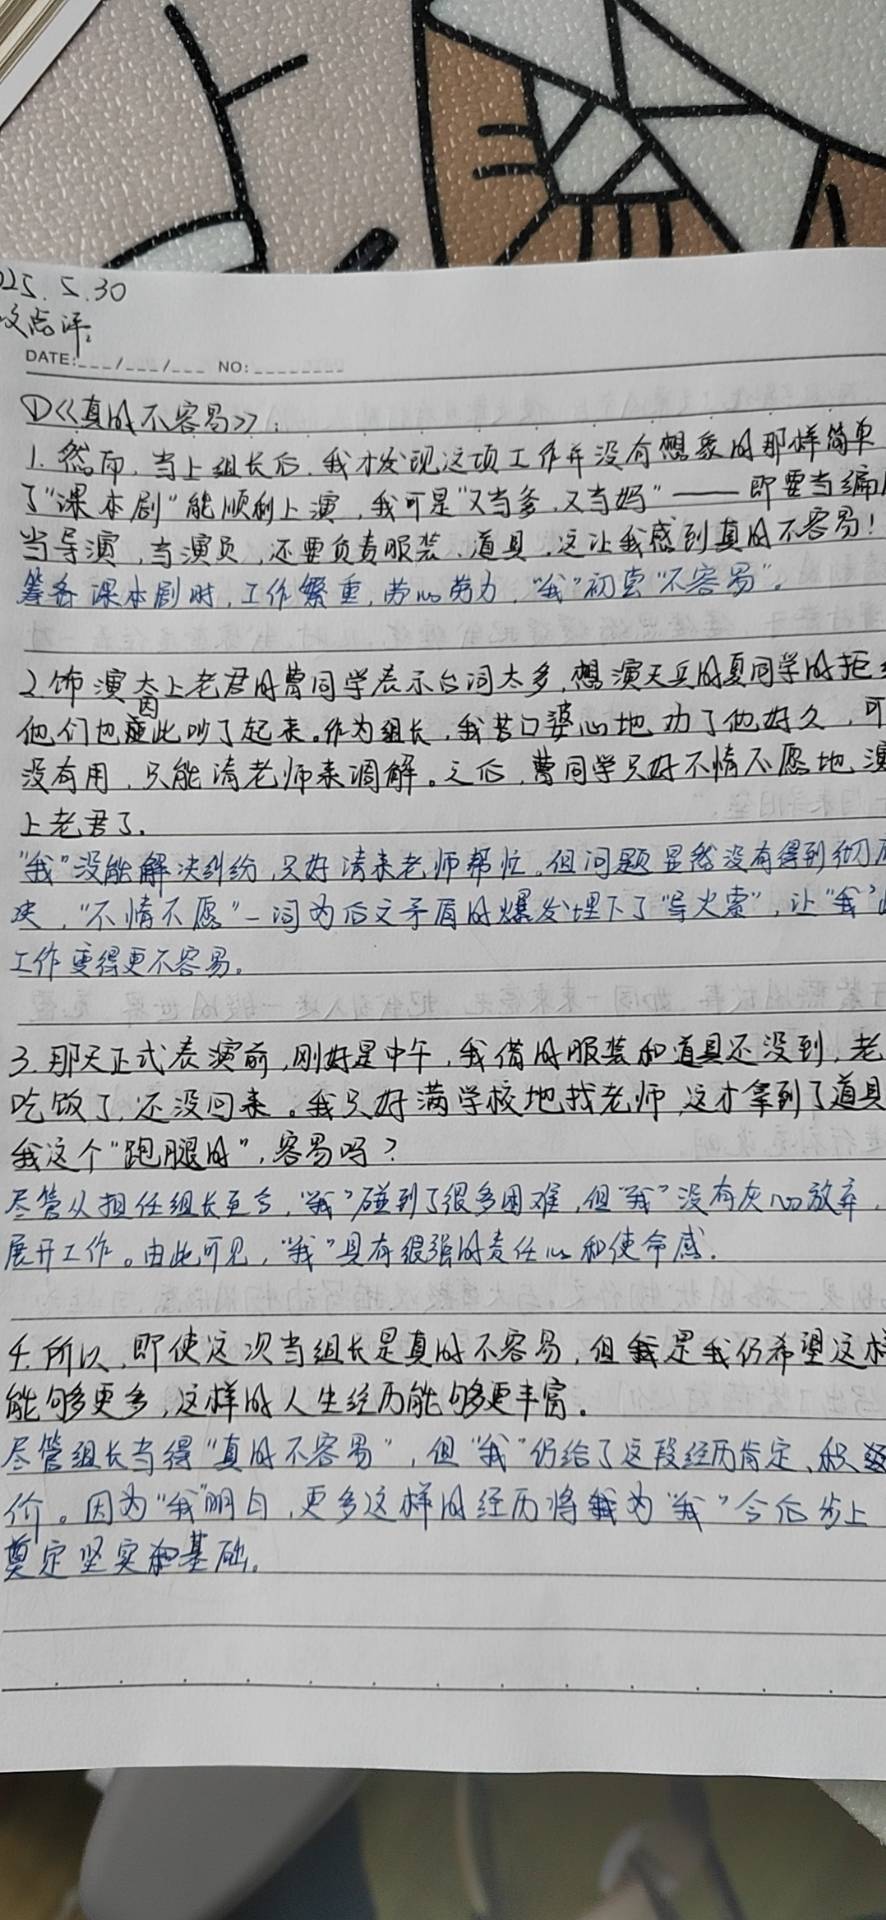 25.5.30
点评:
DATE:___/___/___ NO:________
①《真的不容易》:
1.然而,当上组长后,我才发现这项工作并没有想象的那样简单
了“课本剧”能顺利上演,我可是“又当爹,又当妈”——即要当编
当导演,当演员,还要负责服装、道具,这让我感到真的不容易!
筹备课本剧时,工作繁重,劳心劳力,“我”初尝“不容易”。
2.饰演太上老君的曹同学表示台词太多,想演天兵的夏同学的拒
他们也因此吵了起来。作为组长,我苦口婆心地劝了他好久,可
没有用,只能请老师来调解。之后,曹同学只好不情不愿地演
上老君了。
“我”没能解决纠纷,只好请来老师帮忙。但问题显然没有得到彻
决,“不情不愿”一词为后文矛盾的爆发埋下了“导火索”,让“我”
工作变得更不容易。
3.那天正式表演前,刚好是中午,我借的服装和道具还没到,老
吃饭了,还没回来。我只好满学校地找老师,这才拿到了道具
我这个“跑腿的”,容易吗?
尽管从担任组长至今,“我”碰到了很多困难,但“我”没有灰心放弃,
展开工作。由此可见,“我”具有很强的责任心和使命感.
4.所以,即使这次当组长是真的不容易,但是我仍希望这样
能够更多,这样的人生经历能够更丰富。
尽管组长当得“真的不容易”,但“我”仍给了这段经历肯定、积
价。因为“我”明白,更多这样的经历将为“我”今后步上
奠定坚实基础。